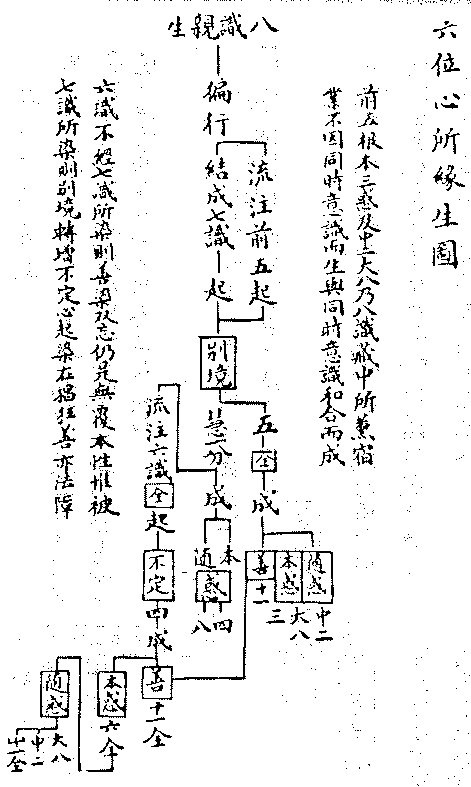 六位心所緣生圖
前五根本三惑及中二大八乃八識藏中所熏宿
業不因同時意識而生與同時意識和合而成
八識親生
徧行
流注前五起
結成七識
起
別境
五
全
成
隨惑
中二
大八
本惑
三
善
十一
慧一分
成
本
隨
惑
四
八
流注六識
全
起
不定
四成
善
十一全
本惑
六全
隨惑
大八
中二
小十全
六識不經七識所染則善染双忘仍是無覆本性惟被
七識所染則別境轉增不定心起染在猖狂善亦法障